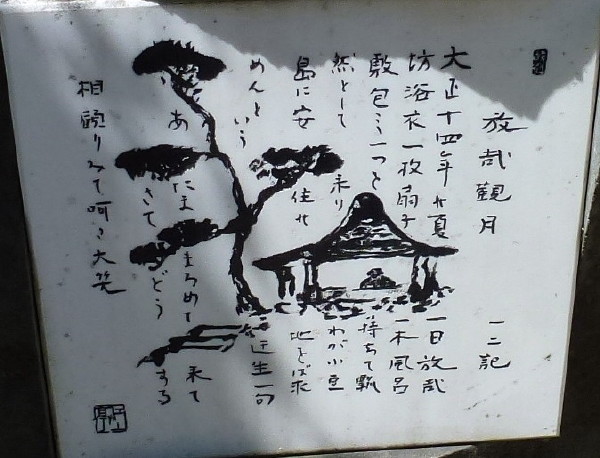 放哉觀月 一二記
大正十四年 夏 一日放哉
坊浴衣一枚扇子 一本風呂
敷包み一つを 持ちて飄
然として 来り わが小豆
島に安 住の 地をば求
めんと いう 近 一句
あ たま まろめて 来て
さて どう する
相顧りみて呵々大笑